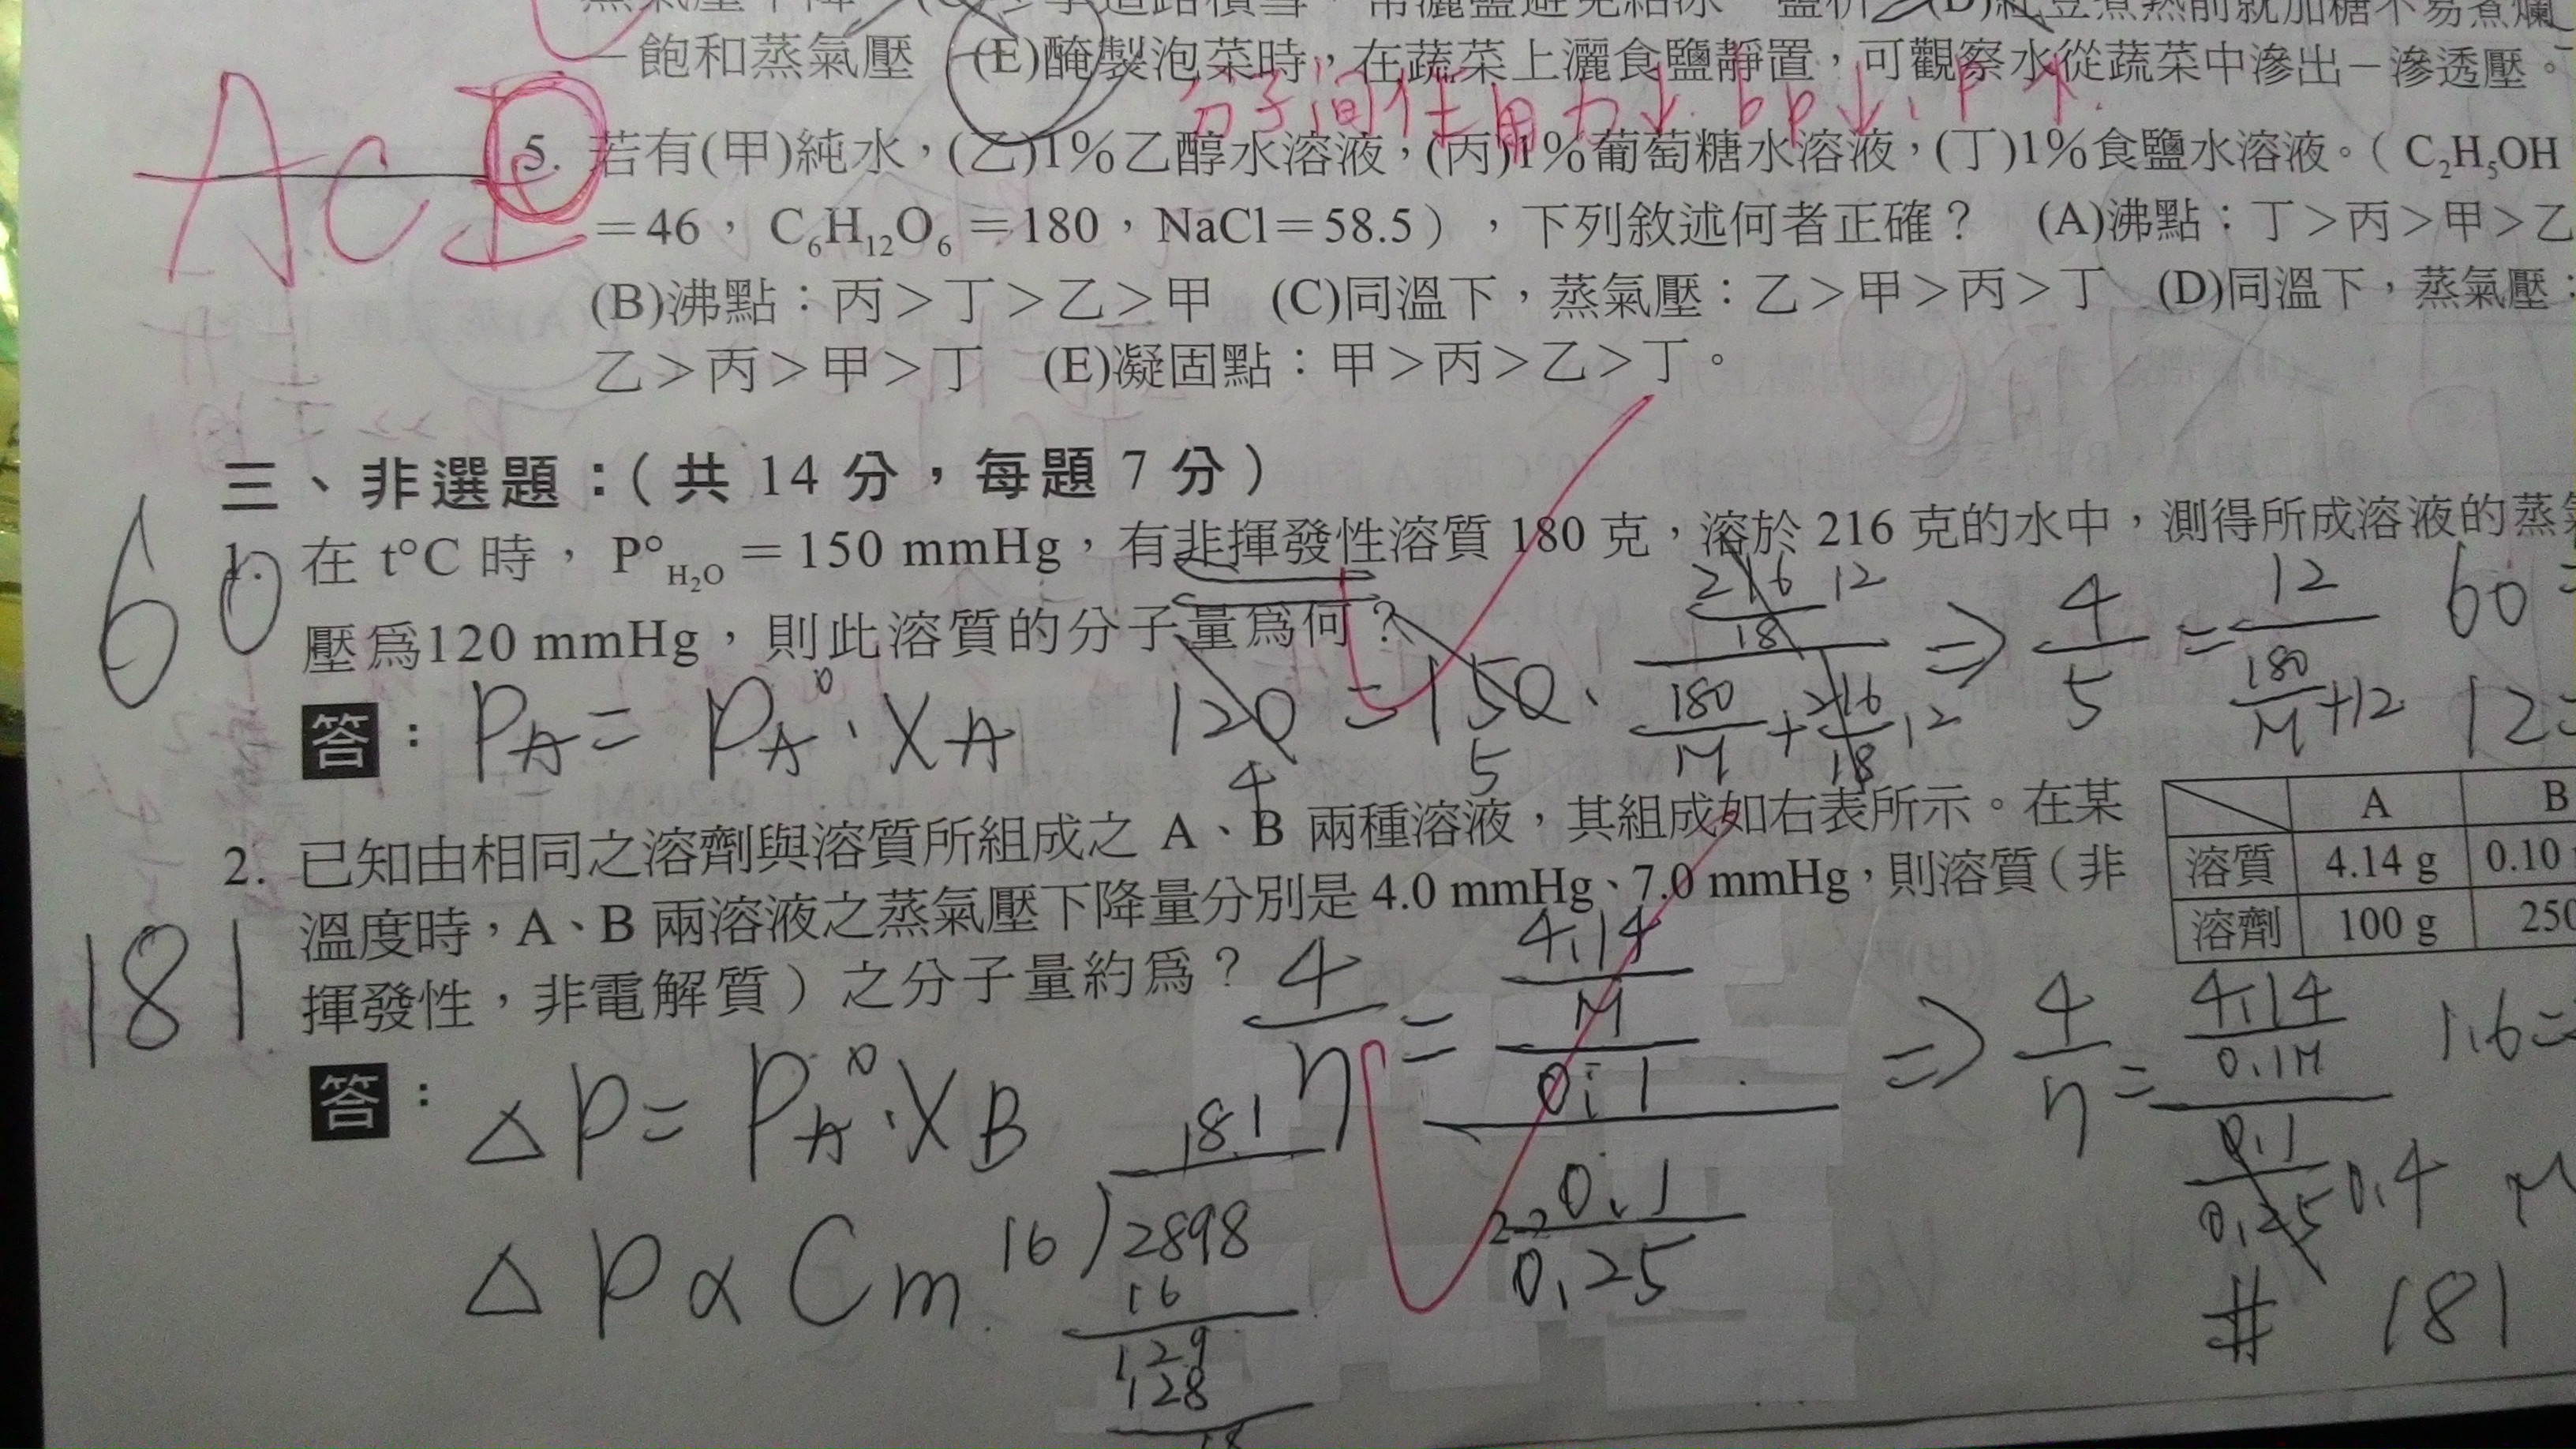 蒸氣壓下降
常灑鹽避免結冰
(D)紅豆煮熟前就加糖不易煮爛
－飽和蒸氣壓 (E)醃製泡菜時，在蔬菜上灑食鹽靜置，可觀察水從蔬菜中滲出－滲透壓。
分子間作用力↓, bp↓, P↑.
ACE
5. 若有(甲)純水，(乙)1%乙醇水溶液，(丙)1%葡萄糖水溶液，(丁)1%食鹽水溶液。（C₂H₅OH
＝46，C₆H₁₂O₆＝180，NaCl＝58.5），下列敘述何者正確？ (A)沸點：丁＞丙＞甲＞乙
(B)沸點：丙＞丁＞乙＞甲 (C)同溫下，蒸氣壓：乙＞甲＞丙＞丁 (D)同溫下，蒸氣壓：
乙＞丙＞甲＞丁 (E)凝固點：甲＞丙＞乙＞丁。
三、非選題：（共 14 分，每題 7 分）
60
1. 在 t°C 時，P°H₂O＝150 mmHg，有非揮發性溶質 180 克，溶於 216 克的水中，測得所成溶液的蒸氣
壓為120 mmHg，則此溶質的分子量為何？
答：PA = PA°·XA 120 = 150· (216/18)/(180/M + 216/18) ⇒ 4/5 = 12/(180/M + 12)
4 5 12 12
60=
12=
2. 已知由相同之溶劑與溶質所組成之 A、B 兩種溶液，其組成如右表所示。在某
溫度時，A、B 兩溶液之蒸氣壓下降量分別是 4.0 mmHg、7.0 mmHg，則溶質（非
揮發性，非電解質）之分子量約為？
A B
溶質 4.14 g 0.10
溶劑 100 g 250
181
答：△P = PA°·XB
4/7 = (4.14/M / 0.1)/(0.1/0.25) ⇒ 4/7 = (4.14/0.1M)/(0.1/0.25) 0.4
1.6=
△P ∝ Cm
181
16)2898
16
129
128
18
M
# 181